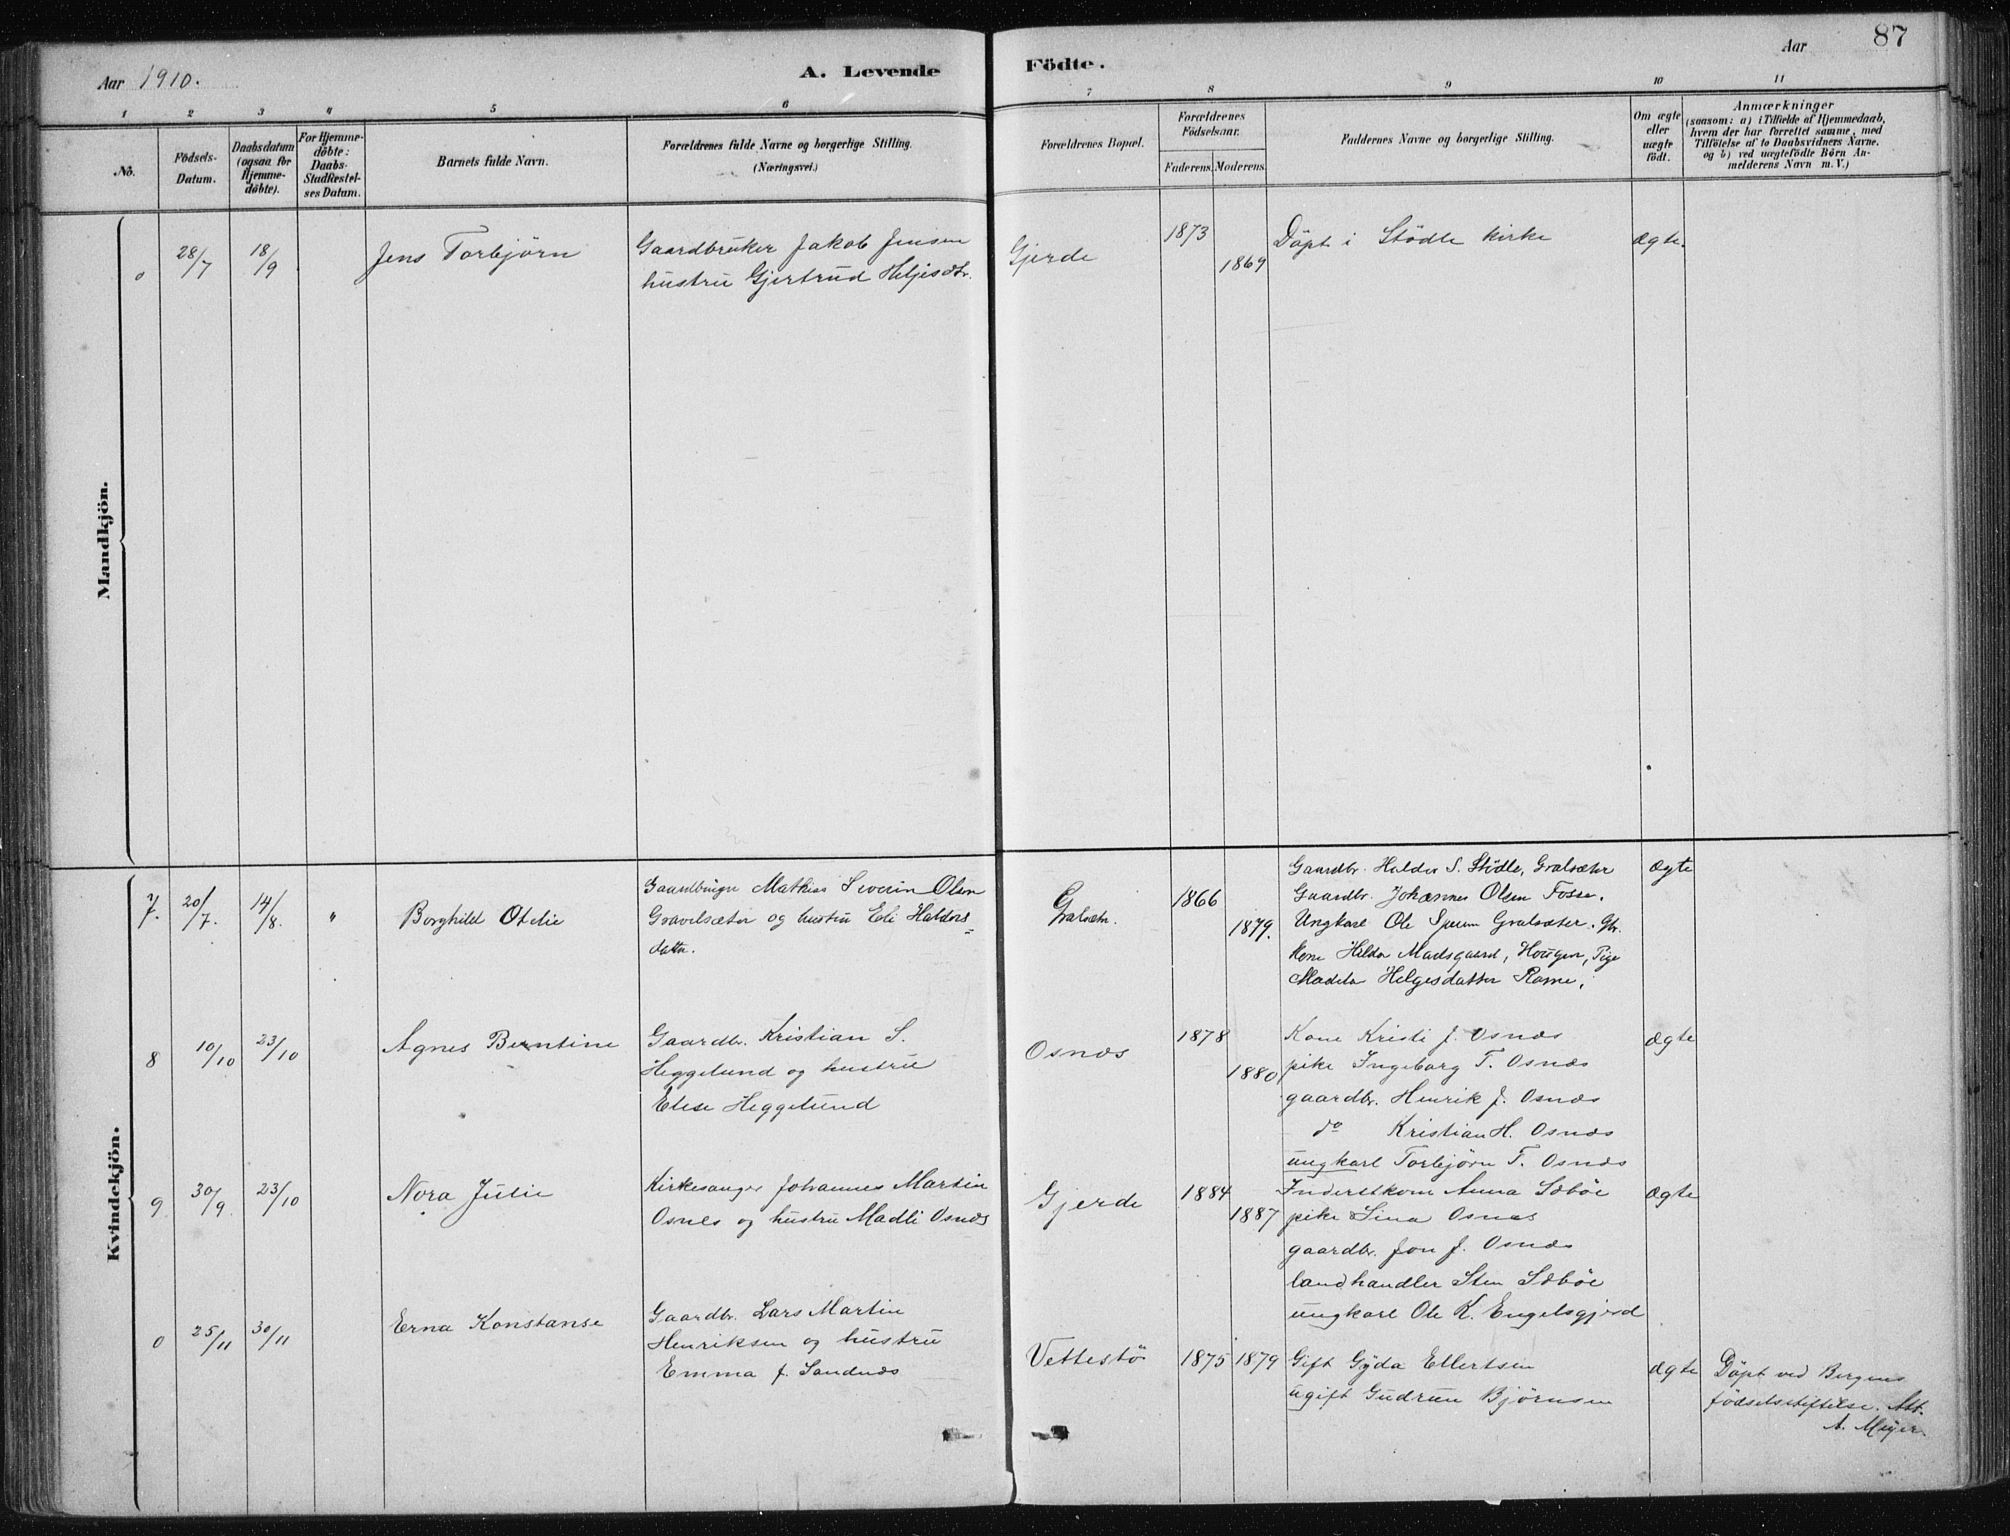 Aar 1910.
A. Levende
Födte.
Aar
87
1 2 3 4 5 6
7 8 9 10 11
No.
Födsels-
Datum.
Daabsdatum
(ogsaa for
Hjemme-
döbte).
For Hjemme-
döbte:
Daabs-
Stadfæstel-
ses Datum.
Barnets fulde Navn.
Forældrenes fulde Navne og borgerlige Stilling.
(Næringsvei.)
Forældrenes Bopæl.
Forældrenes
Födselsaar.
Faderens. Moderens.
Faddernes Navne og borgerlige Stilling.
Om ægte
eller
uægte
födt.
Anmærkninger
(saasom: a) i Tilfælde af Hjemmedaab,
hvem der har forrettet samme, med
Tilföielse af to Daabsvidners Navne,
og b) ved uægtefödte Börn An-
melderens Navn m. V.)
Mandkjön.
0 28/7 18/9 Jens Torbjörn
Gaardbruker Jakob Jensen
hustru Gjertrud Heljesdtr.
Gjerde
1873 1869
Döpt i Stödle kirke
ægte.
Kvindekjön.
7. 20/7. 14/8. " Borghild Otelie
Gaardbruger Mathias Severin Olsen
Gravelsæter og hustru Eli Haldors=
datter.
Gralsætr.
1866 1879.
Gaardbr. Haldor S. Stödle, Gralsæter
Gaardbr. Johannes Olsen Fosse.
Ungkarl Ole Gralsæter. Gbr.
kone Hilda Madsgaard, Hougen, Pige
Madela Helgesdatter Rame.
ægte
8 10/10 23/10 Agnes Berntine
Gaardbr. Kristian S.
Heggelund og hustru
Elise Heggelund
Osnæs
1878 1880
Kone Kristi J. Osnæs
pike Ingeborg T. Osnæs
gaardbr. Henrik J. Osnæs
do Kristian H. Osnæs
ungkarl Torbjörn T. Osnæs
ægte
9 30/9 23/10 Nora Julie
Kirkesanger Johannes Martin
Osnes og hustru Madli Osnæs
Gjerde
1884 1887
Inderstkone Anna Sæböe
pike Lina Osnæs
gaardbr. Jon J. Osnæs
landhandler Sten Sæböe
ungkarl Ole K. Engelsgjerd
ægte
0 25/11 30/11 Erna Konstanse
Gaardbr. Lars Martin
Henriksen og hustru
Emma f. Sandnæs
Vettestö
1875 1879
Gift Gyda Ellertsen
ugift Gudrun Björnsen
ægte
Döpt ved Bergens
födselsstiftelse. Att.
A. Meyer.